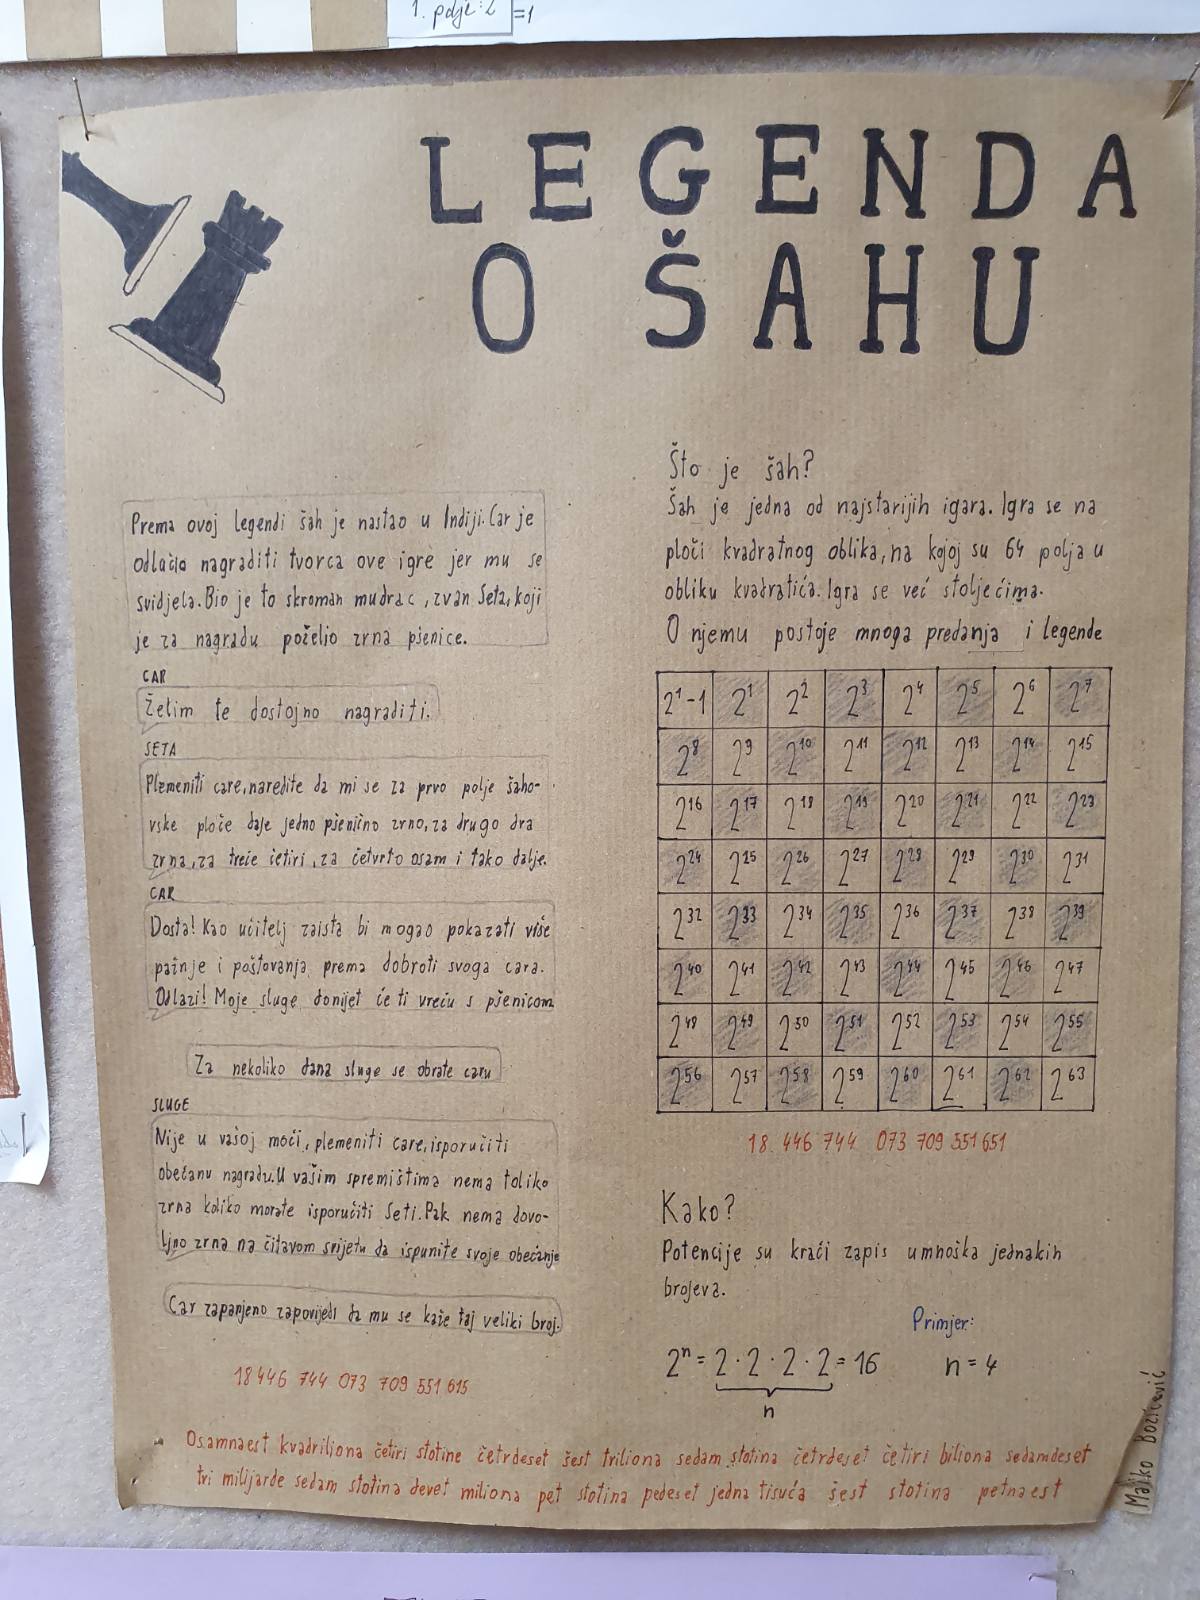 1. polje: 2
=1
LEGENDA
O ŠAHU
Prema ovoj legendi šah je nastao u Indiji. Car je
odlučio nagraditi tvorca ove igre jer mu se
svidjela. Bio je to skroman mudrac, zvan Seta, koji
je za nagradu poželio zrna pšenice.
CAR
Želim te dostojno nagraditi.
SETA
Plemeniti care, naredite da mi se za prvo polje šaho-
vske ploče daje jedno pšenično zrno, za drugo dva
zrna, za treće četiri, za četvrto osam i tako dalje.
CAR
Dosta! Kao učitelj zaista bi mogao pokazati više
pažnje i poštovanja prema dobroti svoga cara.
Odlazi! Moje sluge donijet će ti vreću s pšenicom
Za nekoliko dana sluge se obrate caru
SLUGE
Nije u vašoj moći, plemeniti care, isporučiti
obećanu nagradu. U vašim spremištima nema toliko
zrna koliko morate isporučiti Seti. Pak nema dovo-
ljno zrna na čitavom svijetu da ispunite svoje obećanje
Car zapanjeno zapovijedi da mu se kaže taj veliki broj.
18 446 744 073 709 551 615
Što je šah?
Šah je jedna od najstarijih igara. Igra se na
ploči kvadratnog oblika, na kojoj su 64 polja u
obliku kvadratića. Igra se već stoljećima.
O njemu postoje mnoga predanja i legende
2¹-1 2¹ 2² 2³ 2⁴ 2⁵ 2⁶ 2⁷
2⁸ 2⁹ 2¹⁰ 2¹¹ 2¹² 2¹³ 2¹⁴ 2¹⁵
2¹⁶ 2¹⁷ 2¹⁸ 2¹⁹ 2²⁰ 2²¹ 2²² 2²³
2²⁴ 2²⁵ 2²⁶ 2²⁷ 2²⁸ 2²⁹ 2³⁰ 2³¹
2³² 2³³ 2³⁴ 2³⁵ 2³⁶ 2³⁷ 2³⁸ 2³⁹
2⁴⁰ 2⁴¹ 2⁴² 2⁴³ 2⁴⁴ 2⁴⁵ 2⁴⁶ 2⁴⁷
2⁴⁸ 2⁴⁹ 2⁵⁰ 2⁵¹ 2⁵² 2⁵³ 2⁵⁴ 2⁵⁵
2⁵⁶ 2⁵⁷ 2⁵⁸ 2⁵⁹ 2⁶⁰ 2⁶¹ 2⁶² 2⁶³
18 446 744 073 709 551 651
Kako?
Potencije su kraći zapis umnoška jednakih
brojeva.
Primjer:
2ⁿ = 2 · 2 · 2 · 2 = 16 n = 4
n
Osamnaest kvadriliona četiri stotine četrdeset šest triliona sedam stotina četrdeset četiri biliona sedamdeset
tri milijarde sedam stotina devet miliona pet stotina pedeset jedna tisuća šest stotina petnaest
Matko Božičević